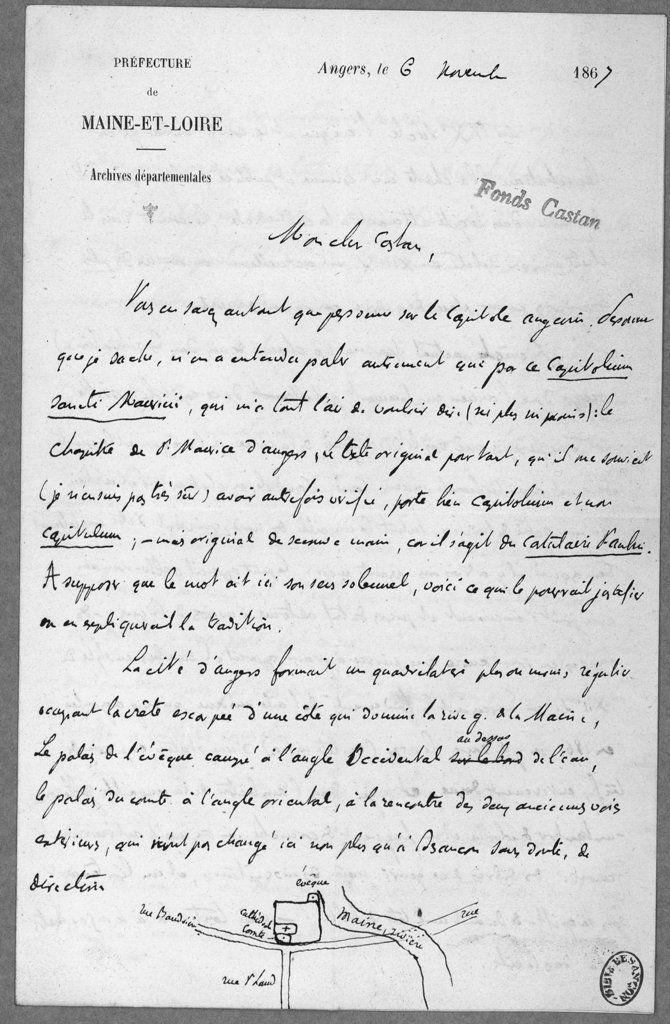 PRÉFECTURE
de
MAINE-ET-LOIRE
Archives départementales
Angers, le 6 Novembre 1867
Fonds Castan
Mon cher Castan,
Vous en savez autant que personne sur le Capitole angevin. Personne
que je sache, n'en a entendu parler autrement que par ce Capitolium
sancti Mauricii, qui m'a tout l'air de vouloir dire (ni plus ni moins) : le
chapitre de St Maurice d'angers, le texte original pourtant, qu'il me souvient
(je n'en suis pas très sûr) avoir autrefois vérifié, porte bien Capitolium et non
Capitulum ; - mais original de seconde main, car il s'agit du Cartulaire d'aubin.
A supposer que le mot ait ici son sens solennel, voici ce qui le pourrait justifier
ou en expliquerait la tradition.
La cité d'angers formait un quadrilatère plus ou moins régulier
occupant la crête escarpée d'une côte qui domine la rive g. de la Maine,
Le palais de l'évêque campé à l'angle Occidental sur le bord au dessus de l'eau,
le palais du comte à l'angle oriental, à la rencontre des deux anciennes voies
extérieures, qui n'ont pas changé ici non plus qu'à Besançon sans doute, de
direction
évêque
rue Baudrière
cathédrale
comte
Maine, rivière
rue
rue St Laud
BIBL. BESANÇON